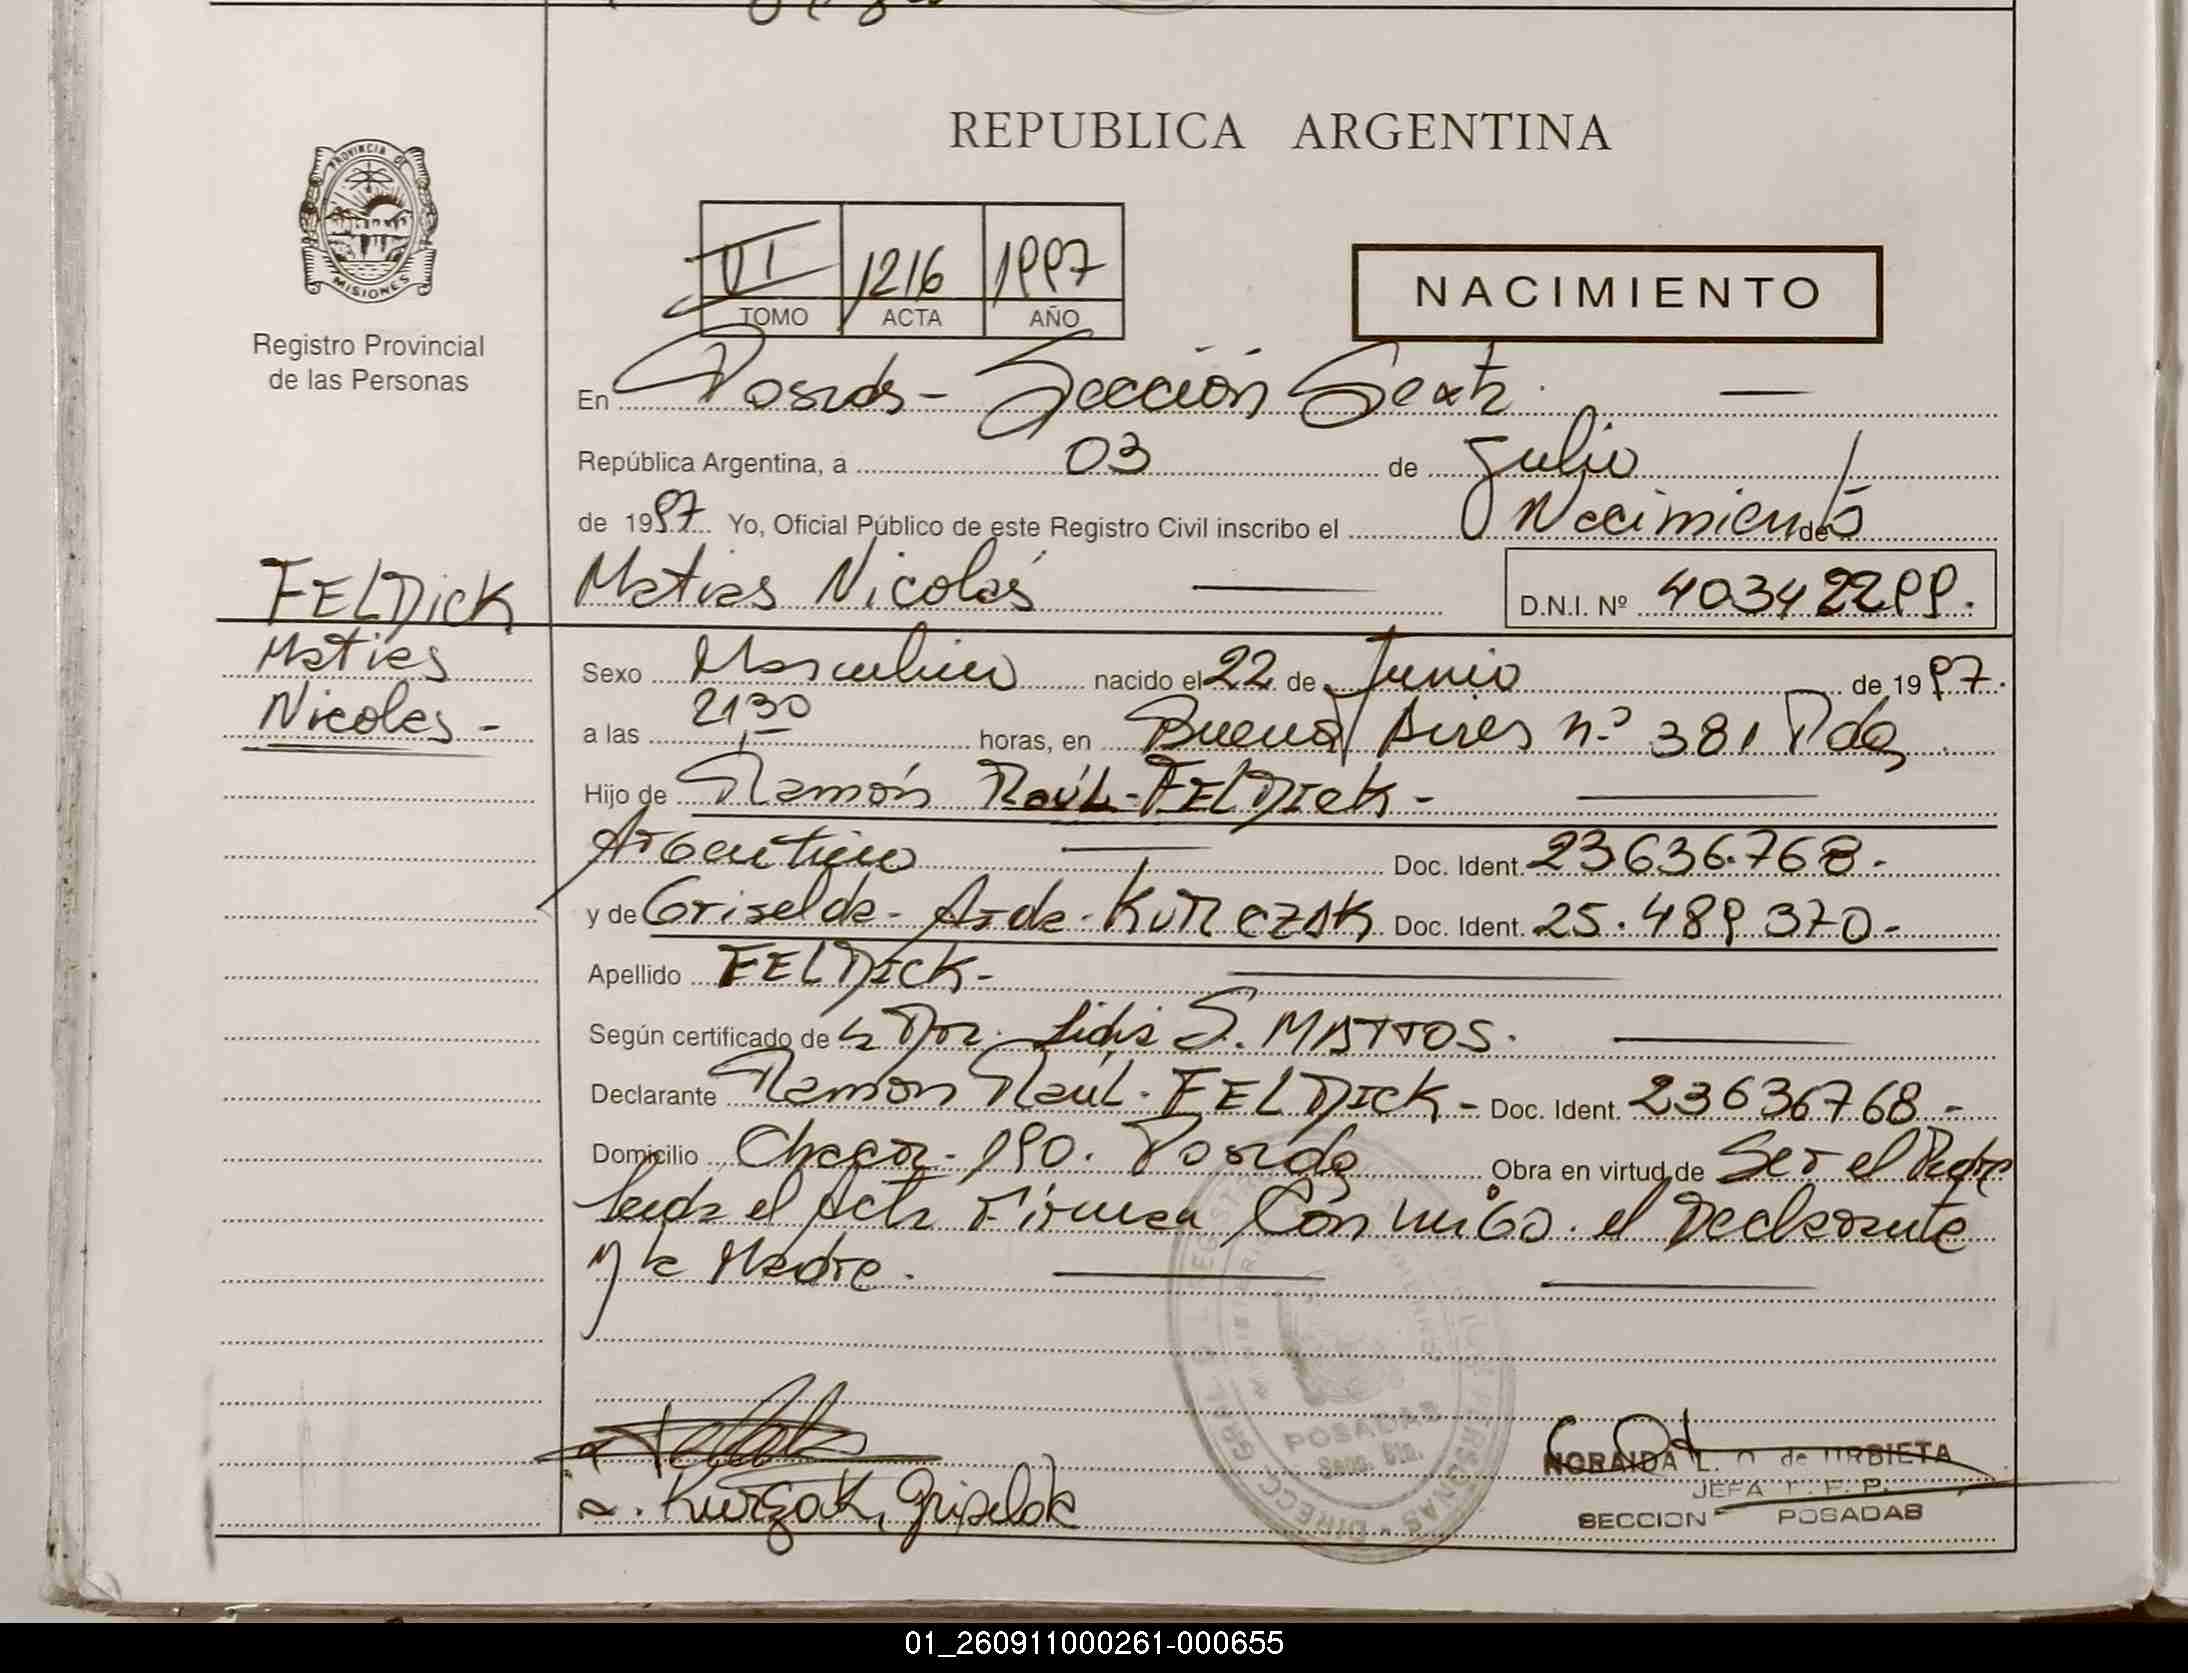 PROVINCIA DE
MISIONES
Registro Provincial
de las Personas
REPUBLICA ARGENTINA
VI 1216 1997
TOMO ACTA AÑO
NACIMIENTO
En Posadas - Sección Sexta.
República Argentina, a 03 de Julio
de 1997 Yo, Oficial Público de este Registro Civil inscribo el Nacimiento de
FELDICK Matias Nicolás D.N.I. Nº 40342299.
Matias Sexo Masculino nacido el 22 de Junio de 1997.
Nicolas - a las 21,30 horas, en Buenos Aires n.º 381 Pdas.
Hijo de Ramón Raúl - FELDICK -
Argentino Doc. Ident. 23.636.768.-
y de Griselda - Aida - KURCZAK Doc. Ident. 25.489 370-
Apellido FELDICK -
Según certificado de la Dra. Lidia S. MATTOS.
Declarante Ramon Raúl - FELDICK - Doc. Ident. 23636768 -
Domicilio 190. Posadas Obra en virtud de Ser el Padre
leida el Acta Firman Conmigo. el Declarante
y la Madre.
POSADAS
NORAIDA L. O. de URBIETA
JEFA
Griselda
SECCION POSADAS
01_260911000261-000655